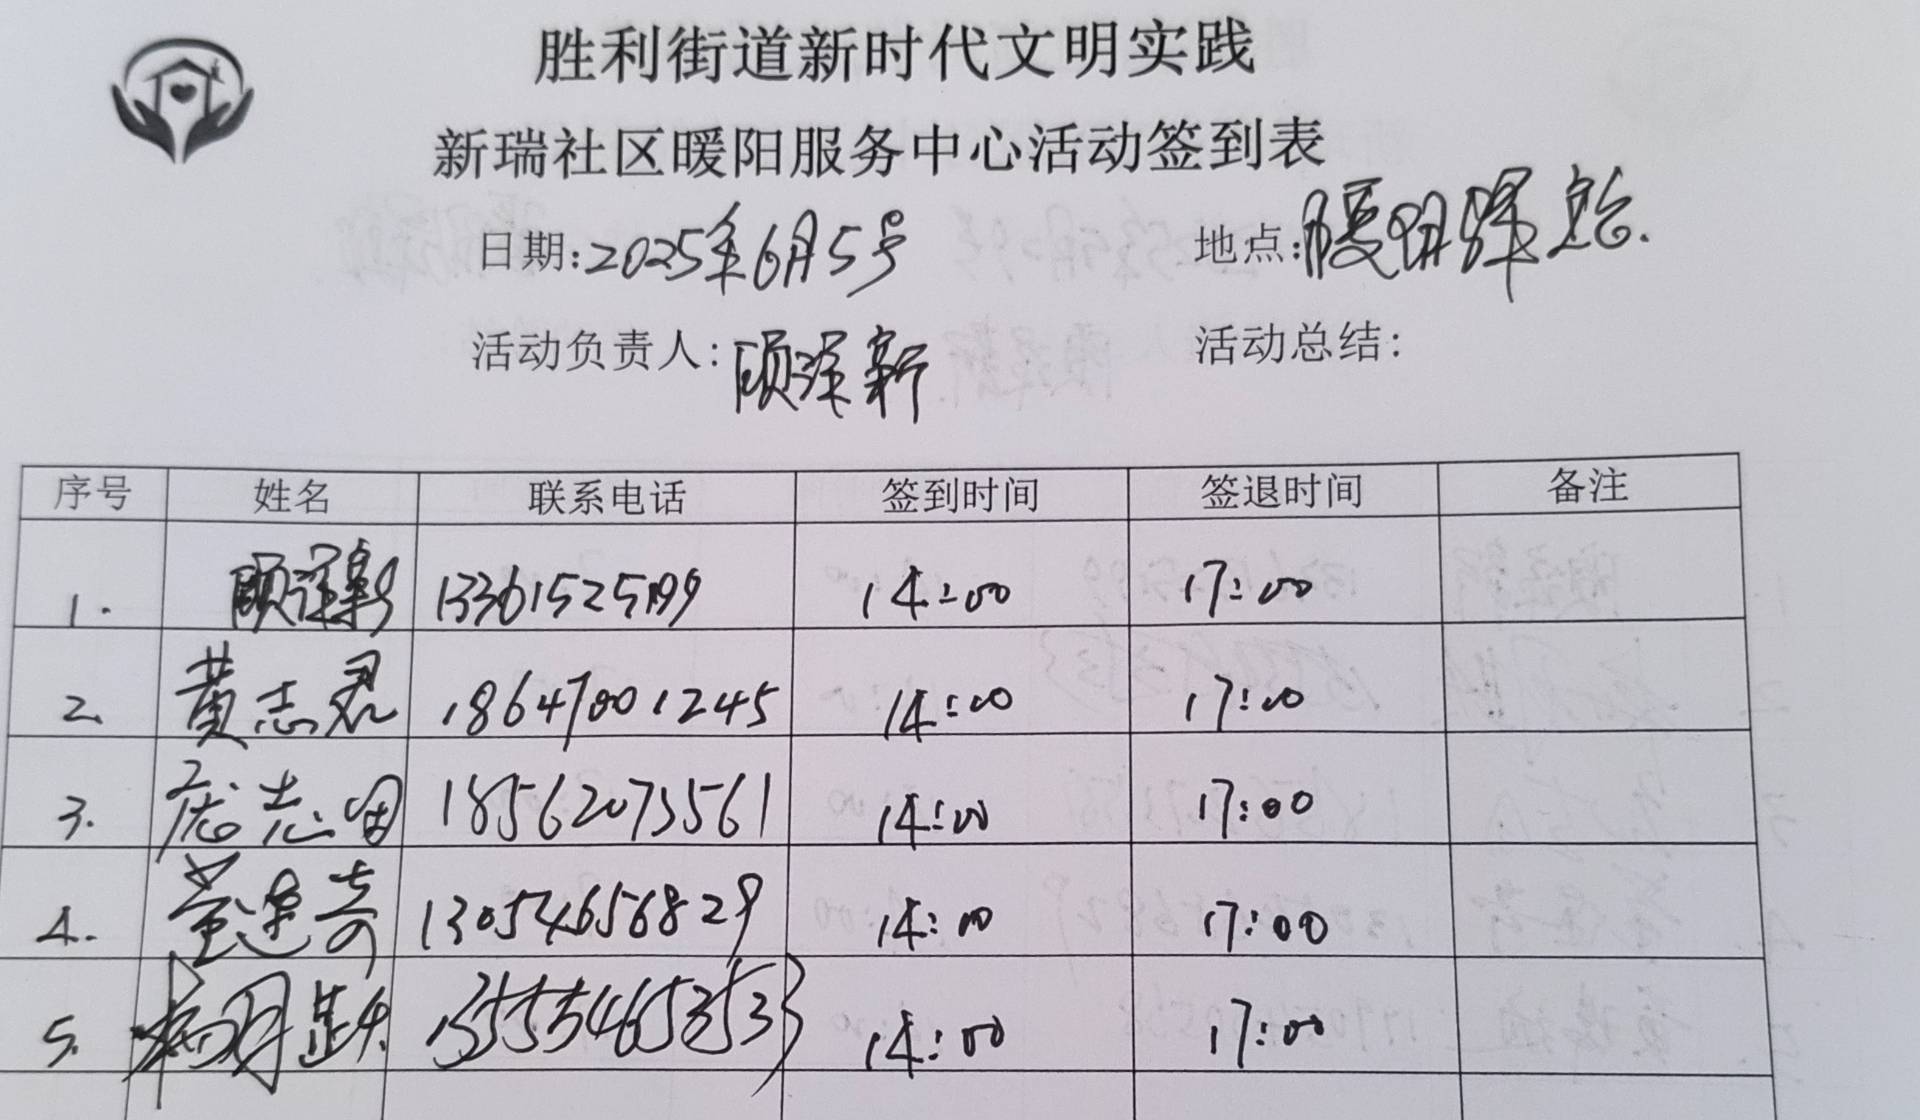 胜利街道新时代文明实践
新瑞社区暖阳服务中心活动签到表
日期:2025年6月5号 地点:暖阳驿站.
活动负责人:顾泽新 活动总结:
序号 姓名 联系电话 签到时间 签退时间 备注
1. 顾泽新 13361525199 14:00 17:00
2. 黄志君 18647001245 14:00 17:00
3. 志 18562073561 14:00 17:00
4. 董连奇 13054656829 14:00 17:00
5. 明 14:00 17:00